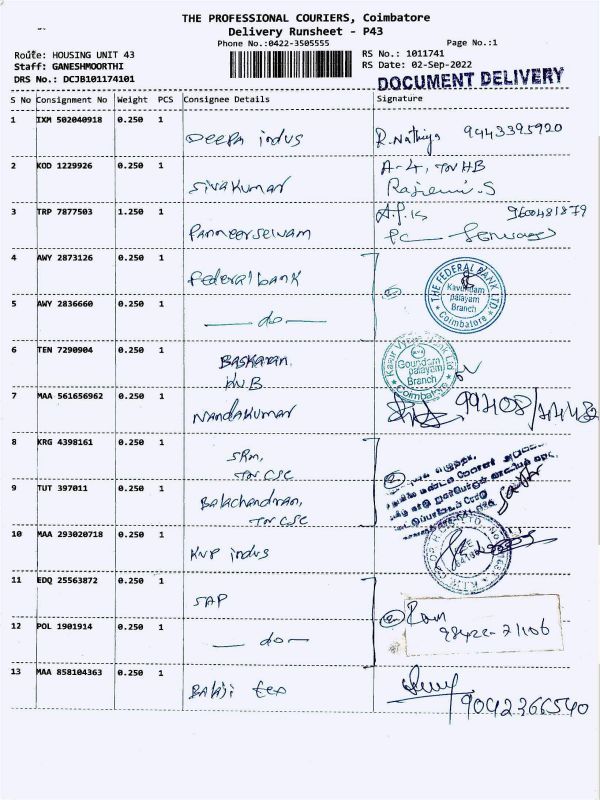 THE PROFESSIONAL COURIERS, Coimbatore
Delivery Runsheet - P43
Phone No.:0422-3505555
Page No.:1
Route: HOUSING UNIT 43
RS No.: 1011741
Staff: GANESHMOORTHI
RS Date: 02-Sep-2022
DRS No.: DCJB101174101
DOCUMENT DELIVERY
S No Consignment No Weight PCS Consignee Details Signature
1 IXM 502040918 0.250 1 Deepa indus R. Nathiya 9443395920
2 KOD 1229926 0.250 1 Sivakumar A-4, TNHB
3 TRP 7877503 1.250 1 Panneerselvam
4 AWY 2873126 0.250 1 Federal bank THE FEDERAL BANK LTD. Kavundam palayam Branch Coimbatore
5 AWY 2836660 0.250 1 — do —
6 TEN 7290904 0.250 1 Baskaran, KVB Karur Vysya Bank Ltd Goundam palayam Branch Coimbatore
7 MAA 561656962 0.250 1 Nandakumar
8 KRG 4398161 0.250 1 SRM, TNCSC
9 TUT 397011 0.250 1 Balachandran, TNCSC
10 MAA 293020718 0.250 1 KNP indus
11 EDQ 25563872 0.250 1 SAP Ram
12 POL 1901914 0.250 1 — do —
13 MAA 858104363 0.250 1 Balaji tex 9042366540